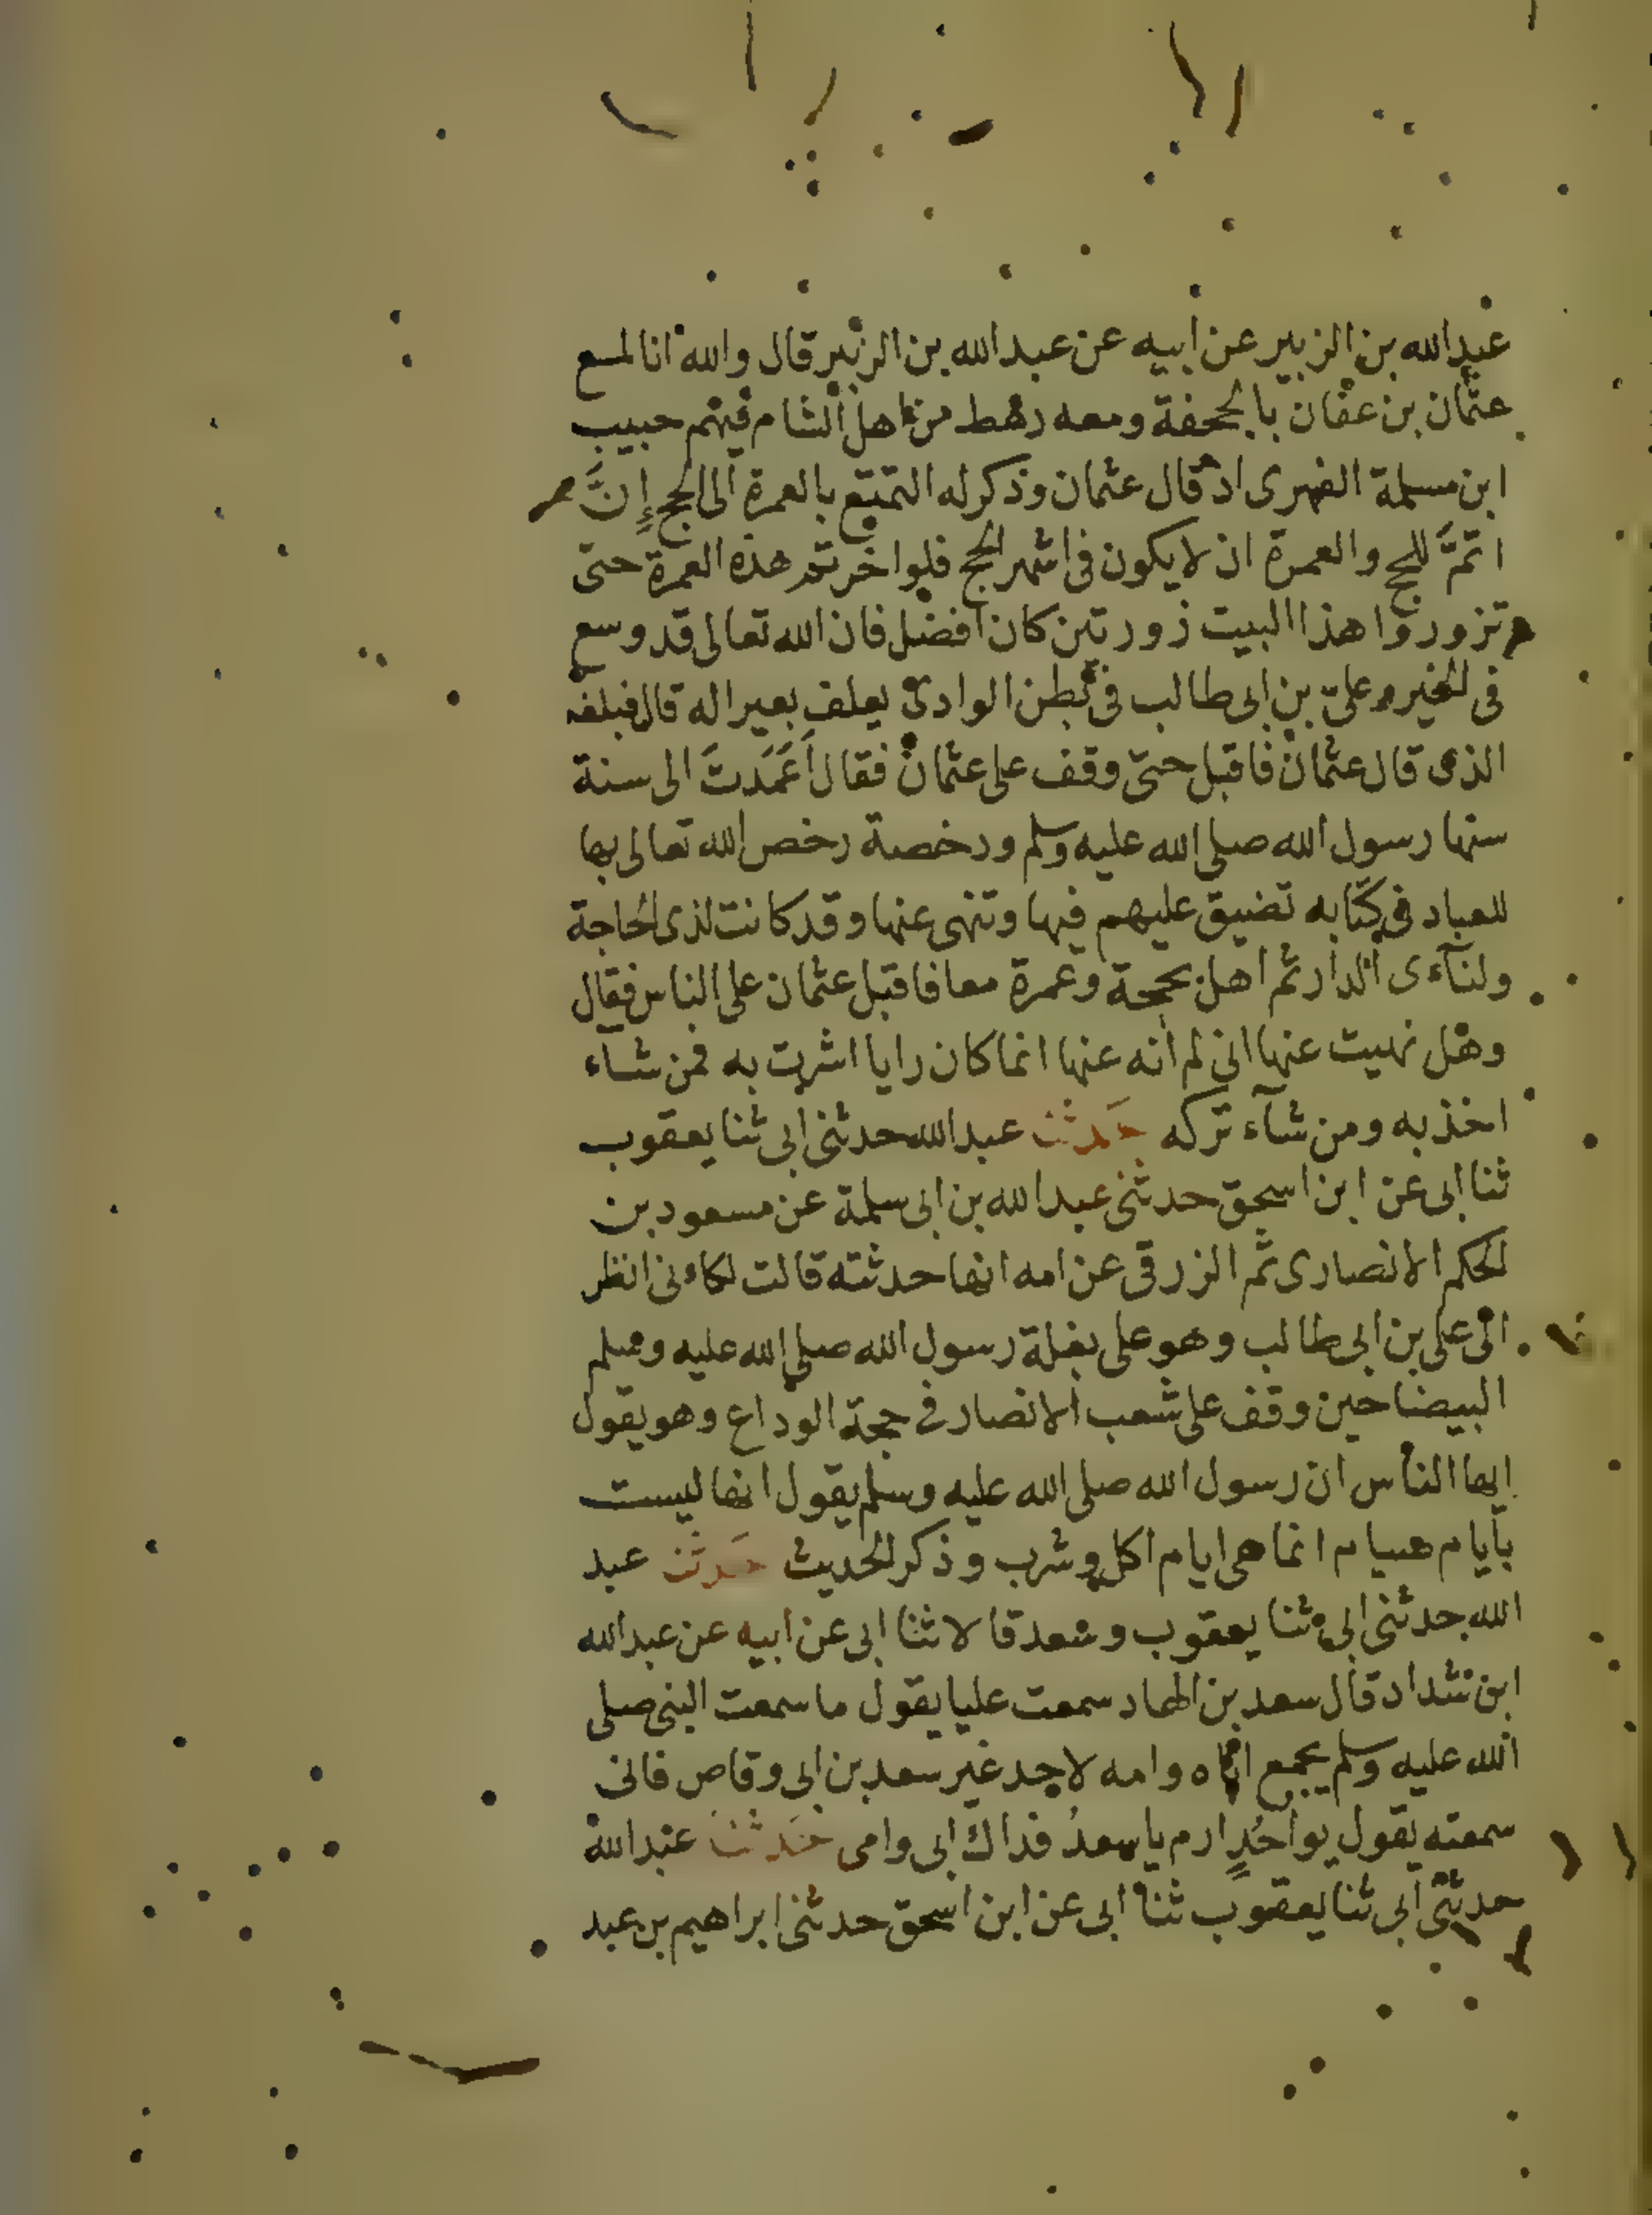 عبدالله بن الزبير عن ابيه عن عبدالله بن الزبير قال والله انا لمع
عثمان بن عفان بالجحفة ومعه رهط من اهل الشام فيهم حبيب
ابن مسلمة الفهرى اذ قال عثمان وذكر له التمتع بالعمرة الى الحج إِنَّ
اتمَّ للحج والعمرة ان لا يكون فى اشهر الحج فلو اخرتم هذه العمرة حتى
تزوروا هذا البيت زورتين كان افضل فان الله تعالى قد وسع
فى الخير وعلىّ بن ابى طالب فى بطن الوادى يعلف بعيرا له قال فبلغه
الذى قال عثمان فاقبل حتى وقف على عثمان فقال أَعَمَدتَ الى سنة
سنها رسول الله صلى الله عليه وسلم ورخصة رخص الله تعالى بها
للعباد فى كتابه تضيق عليهم فيها وتنهى عنها وقد كانت لذى الحاجة
ولنآءى الدار ثم اهل بحجة وعمرة معا فاقبل عثمان على الناس فقال
وهل نهيت عنها انى لم انه عنها انما كان رايا اشرت به فمن شاء
اخذ به ومن شآء تركه حَدثنا عبدالله حدثنى ابى ثنا يعقوب
ثنا ابى عن ابن اسحق حدثنى عبدالله بن ابى سلمة عن مسعود بن
الحكم الانصارى ثم الزرقى عن امه انها حدثته قالت لكاءنى انظر
الى على بن ابى طالب وهو على بغلة رسول الله صلى الله عليه وسلم
البيضا حين وقف على شعب الانصار فى حجة الوداع وهو يقول
ايها الناس ان رسول الله صلى الله عليه وسلم يقول انها ليست
بايام صيام انما هى ايام اكل وشرب وذكر الحديث حَدثنا عبد
الله حدثنى ابى ثنا يعقوب وسعد قالا ثنا ابى عن ابيه عن عبدالله
ابن شداد قال سعد بن الهاد سمعت عليا يقول ما سمعت النبى صلى
الله عليه وسلم يجمع اباه وامه لاحد غير سعد بن ابى وقاص فانى
سمعته يقول يو احُدٍ ارم يا سعدُ فداك ابى وامى حَدثنا عبدالله
حدثنى ابى ثنا يعقوب ثنا ابى عن ابن اسحق حدثنى ابراهيم بن عبد